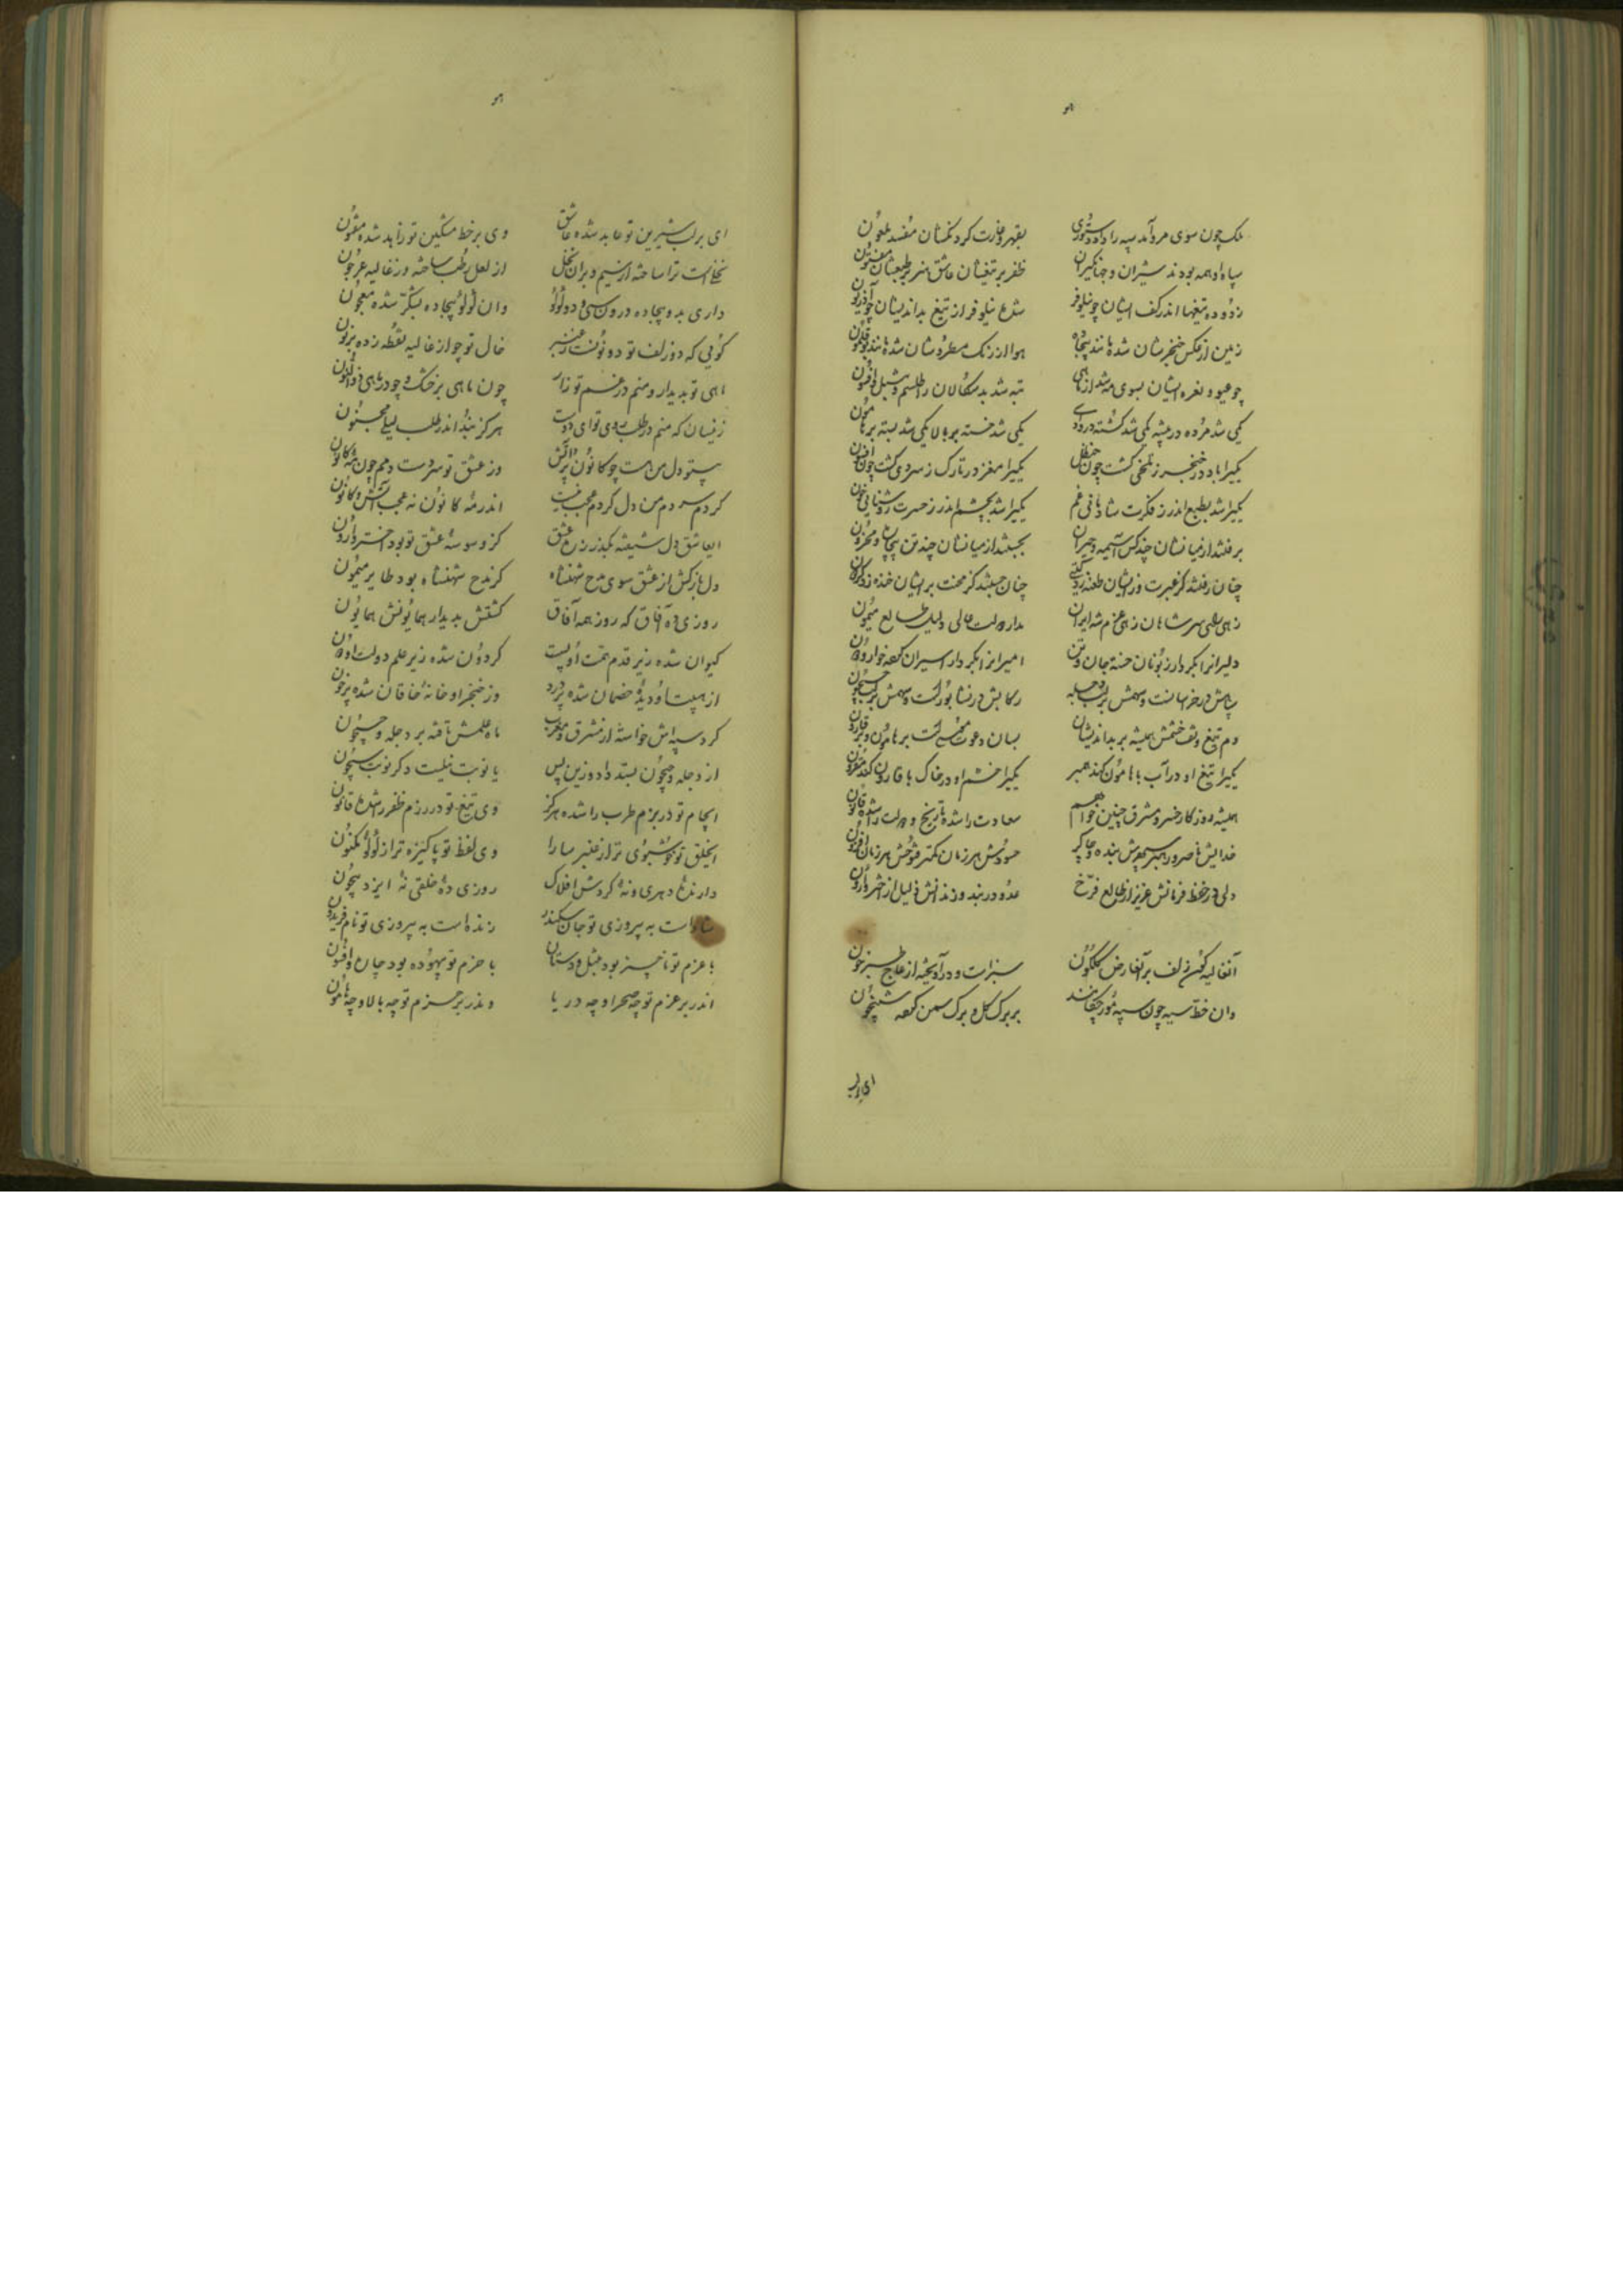 ملک چون سوی مرو آمد سپه را داد دستوری بقهر و غارت کردنکشان مفسد ملعون
سپاه او همه بودند شیران و جهانگیران ظفر بر تیغشان عاشق هنر بر طبعشان مفتون
زدوده تیغها اندر کف ایشان چو نیلوفر شده نیلوفر از تیغ بداندیشان چو آذریون
زمین از عکس خنجرشان شده مانند بیجاده هوا از رنگ مطردشان شده مانند بوقلمون
تبه شد بدسکالان را طلسم و تنبل و افسون
یکی شد مرده در بیشه یکی شد کشته در وادی یکی شد خسته بر بالا یکی شد بسته بر هامون
یکیرا مغز در تارک ز سردی گشت چون افیون
یکیرا شد بطبع اندر ز فکرت شادمانی غم یکیرا شد بچشم اندر ز حسرت روشنایی خون
برفتند از میانشان چند کس آسیمه و حیران بجستند از میانشان چند تن پیچان و محزون
چنان رفتند کز عبرت بر ایشان طعنه زد چنان جستند کز محنت بر ایشان خنده زد
مدار دولت عالی دلیل طالع میمون
دلیرانرا بکردار زبونان خسته جان و تن امیرانرا بکردار اسیران کرده خوار و دون
رکابش در نشابورست و سهمش بر لب جیحون
دم تیغ و تف خشمش همیشه بر بداندیشان بسان دعوت موسیست بر هامان و بر قارون
یکیرا تیغ او در آب با هامون کند همبر یکیرا خشم او در خاک با قارون کند مقرون
همیشه روزگار خسرو مشرق چنین خواهم سعادت را شده تاریخ و دولت را شده قانون
خدایش ناصر و رهبر سپهرش بنده و چاکر حسودش هر زمان کمتر فتوحش هر زمان افزون
ولی در خط فرمانش عزیز از طالع فرخ عدو در بند و زندانش ذلیل از اختر وارون
آن غالیه گون زلف بر آن عارض گلگون شبرنگ و درآویخته از عاج طبرخون
وان خط سیه چون سپه مور چکانند بر برگ گل و برگ سمن کرده شبیخون
ای بر لب
ای بر لب شیرین تو عابد شده عاشق وی بر خط مشکین تو زاهد شده مفتون
نخلست ترا ساخته از سیم و بران نخل از لعل رطب ساخته وز غالیه عرجون
داری بدو بیجاده درون سی و دو لولو وان لولو و بیجاده بشکر شده معجون
گویی که دو زلف تو دو نونست ز عنبر خال تو چو از غالیه نقطه زده بر نون
ماهی تو بدیدار و منم در غم تو زار چون ماهی بر خشک و چو در ماهی ذوالنون
زینسان که منم در طلب روی تو ای دوست هرگز نبد اندر طلب لیلی مجنون
بی تو دل من هست چو کانون پر آتش وز عشق تو سردست دمم چون مه کانون
گر دم سردم من و دل گرم عجب نیست اندر مه کانون نه عجب آتش و کانون
ای عاشق دل شیفته بگذر ز ره عشق کز وسوسه عشق تو بود اختر وارون
دل بازکش از عشق سوی مدح شهنشاه کز مدح شهنشاه بود طایر میمون
روزی ده آفاق که روز همه آفاق گشتش بدیدار همایونش همایون
کیوان شده زیر قدم همت او پست گردون شده زیر علم دولت او دون
از هیبت او دیده خصمان شده پر درد وز خنجر او خانه خاقان شده پر خون
گرد سپهش خواسته از مشرق و مغرب ماه علمش تافته بر دجله و جیحون
از دجله و جیحون بستد داد و زین پس یا نوبت نیلست و گر نوبت سیحون
ای جام تو در بزم طرب را شده مرکز وی تیغ تو در رزم ظفر را شده قانون
ای خلق تو خوشبوی تر از عنبر سارا وی لفظ تو پاکیزه تر از لولو مکنون
دارنده دهری و نه گردش افلاک روزی ده خلقی نه ایزد بیچون
شادست به پیروزی تو جان سکندر زنده است به پیروزی تو نام فریدون
با عزم تو ناچیز بود تنبل و دستان با حزم تو بیهوده بود چاره و افسون
اندر بر عزم تو چه صحرا و چه دریا وندر بر حزم تو چه بالا و چه هامون